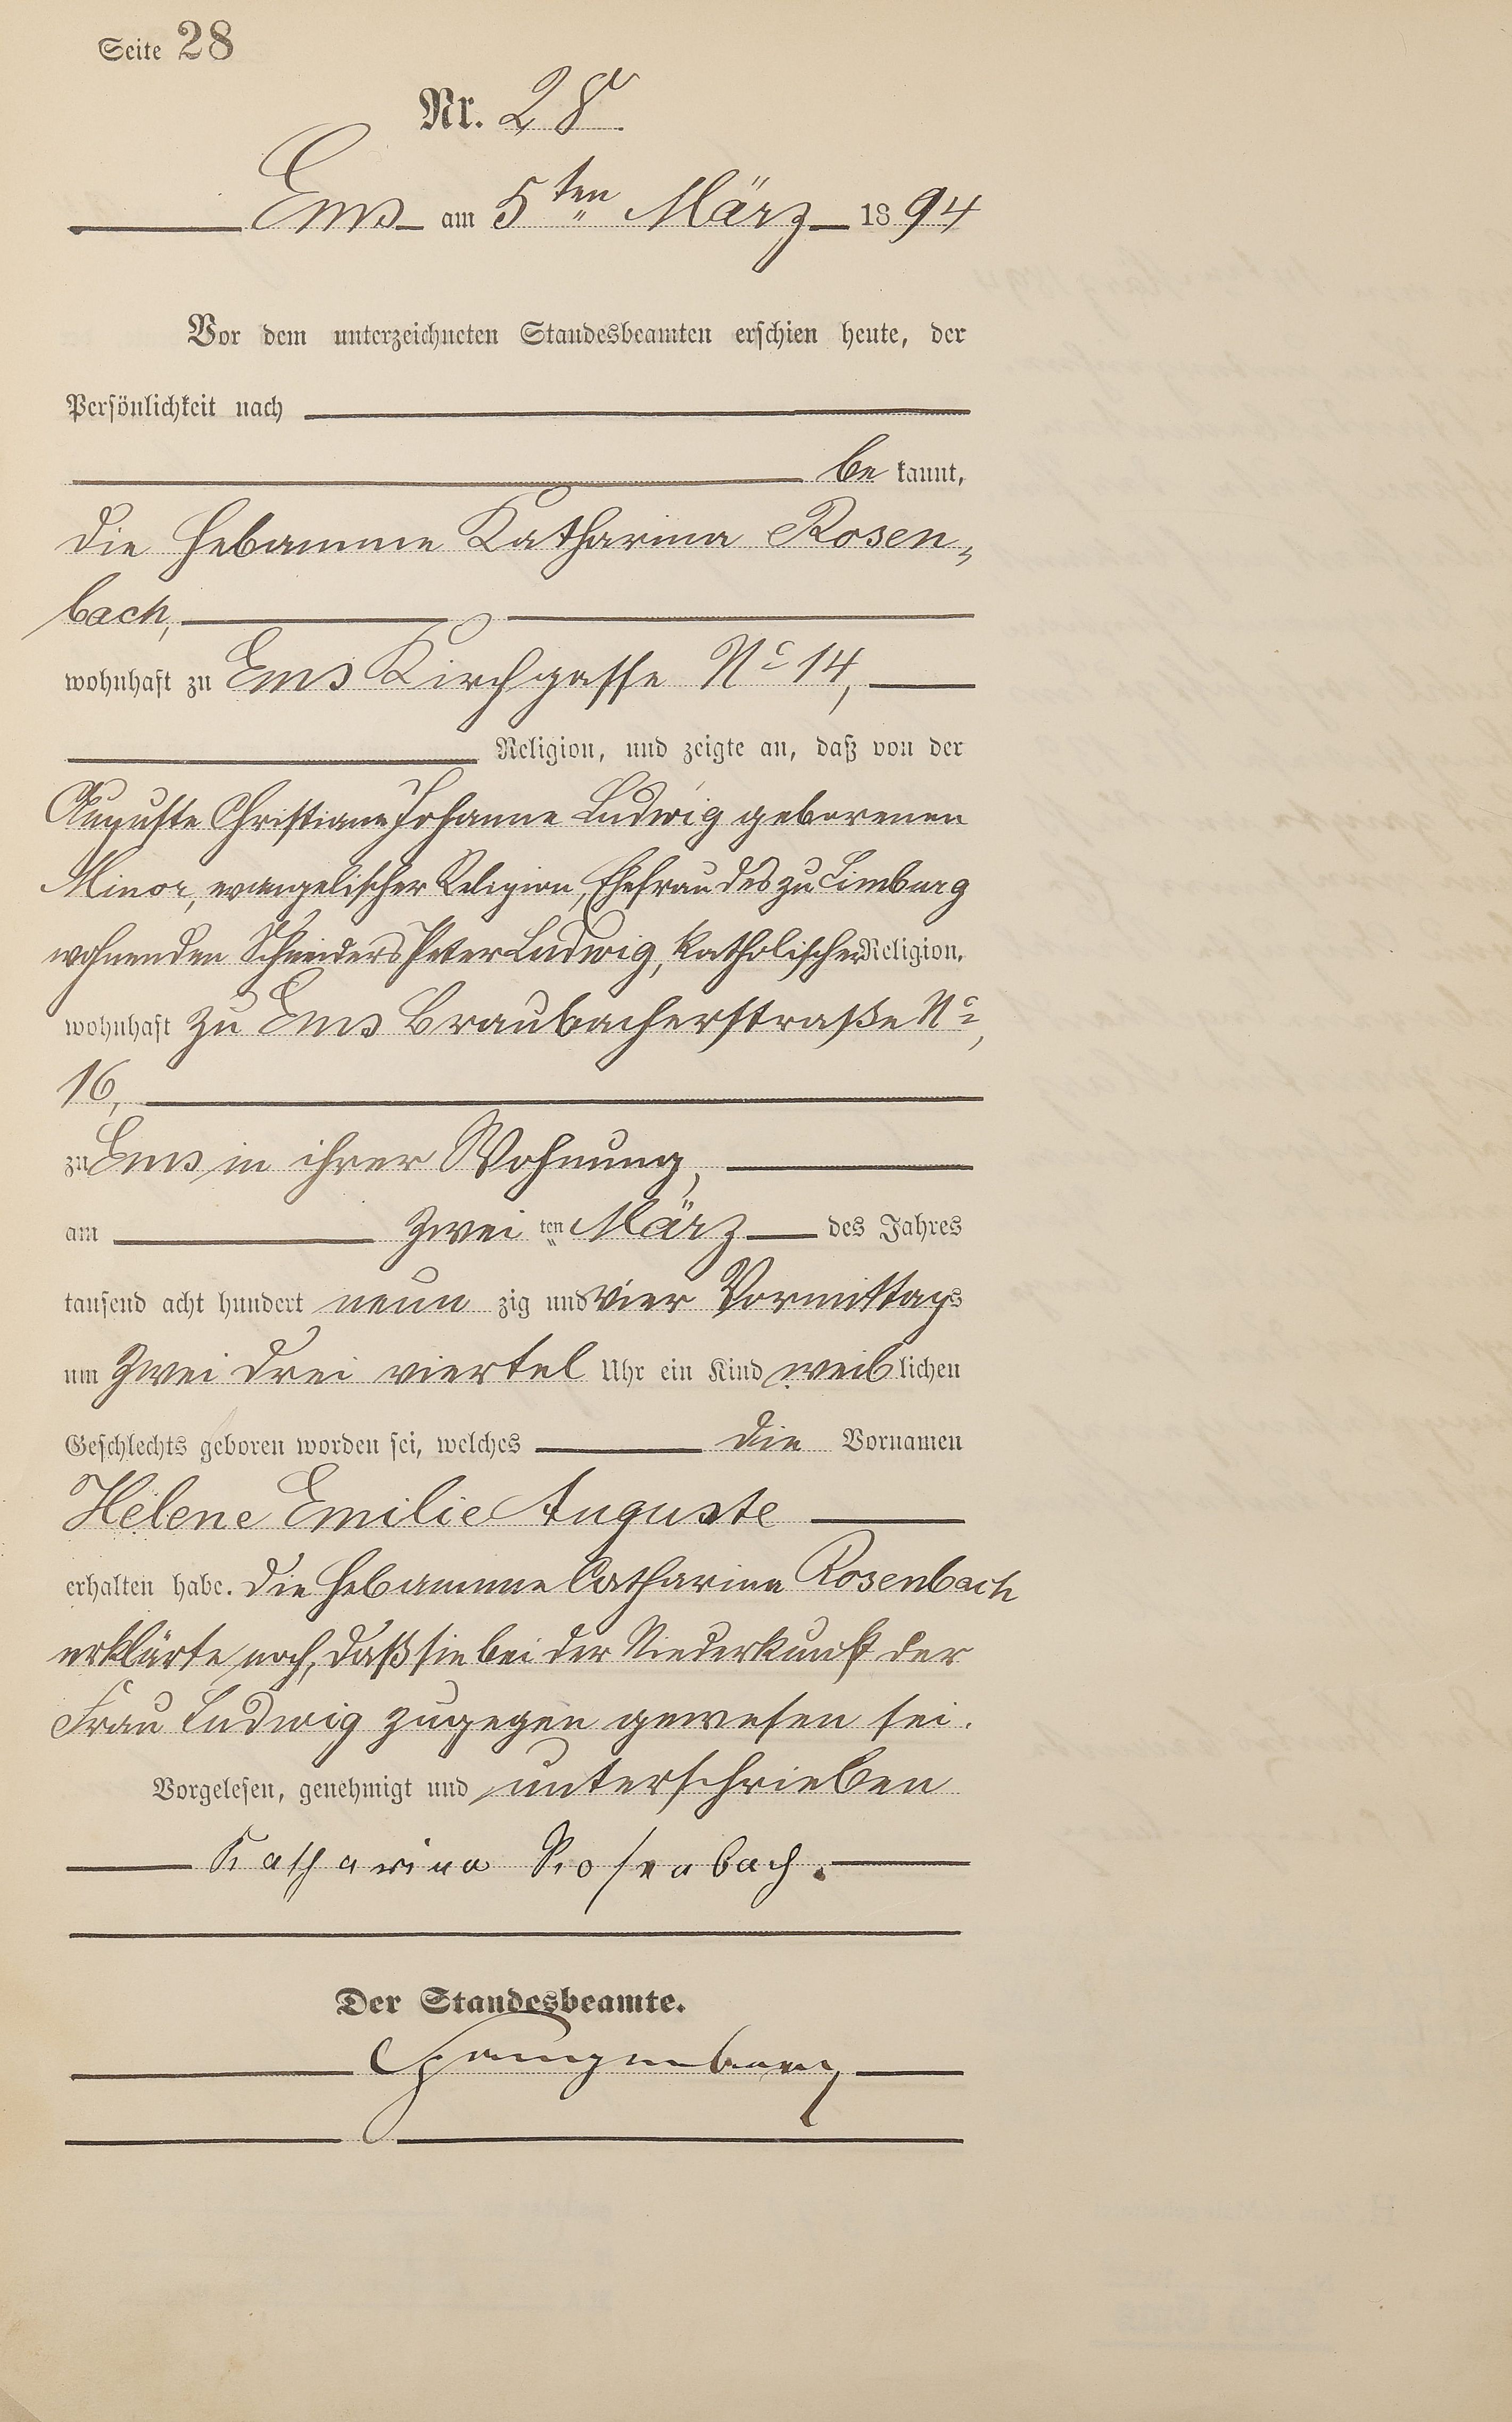 Seite 28
Nr. 28
Ems am 5ten März 1894
Vor dem unterzeichneten Standesbeamten erschien heute, der
Persönlichkeit nach
be kannt,
die Hebamme Katharina Rosen„
bach,
wohnhaft zu Ems Kirchgasse No 14,
Religion, und zeigte an, daß von der
Auguste Christiane Johanne Ludwig geborenen
Minor, evangelischer Religion, Ehefrau des zu Limburg
wohnenden Schneiders Peter Ludwig, katholischer Religion,
wohnhaft zu Ems Braubacherstraße No,
16,
zu Ems in ihrer Wohnung,
am zwei ten März des Jahres
tausend acht hundert neun zig und vier Vormittags
um zwei drei viertel Uhr ein Kind weiblichen
Geschlechts geboren worden sei, welches die Vornamen
Helene Emilie Auguste
erhalten habe. Die Hebamme Catharina Rosenbach
erklärte noch, daß sie bei der Niederkunft der
Frau Ludwig zugegen gewesen sei.
Vorgelesen, genehmigt und unterschrieben
Katharina Rosenbach.
Der Standesbeamte.